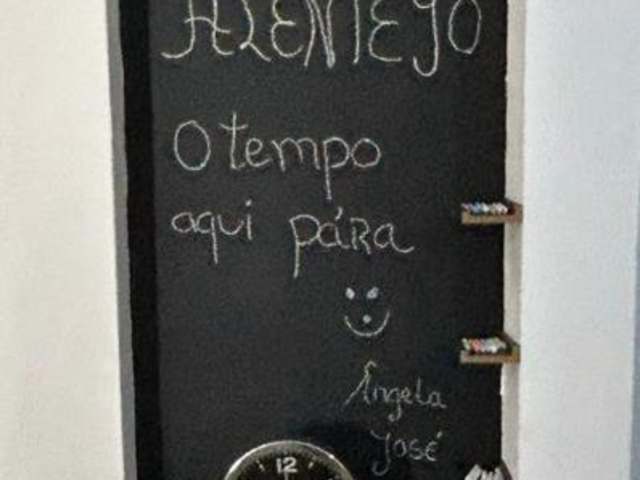 ALENTEJO
O tempo
aqui pára
Ângela
José
12